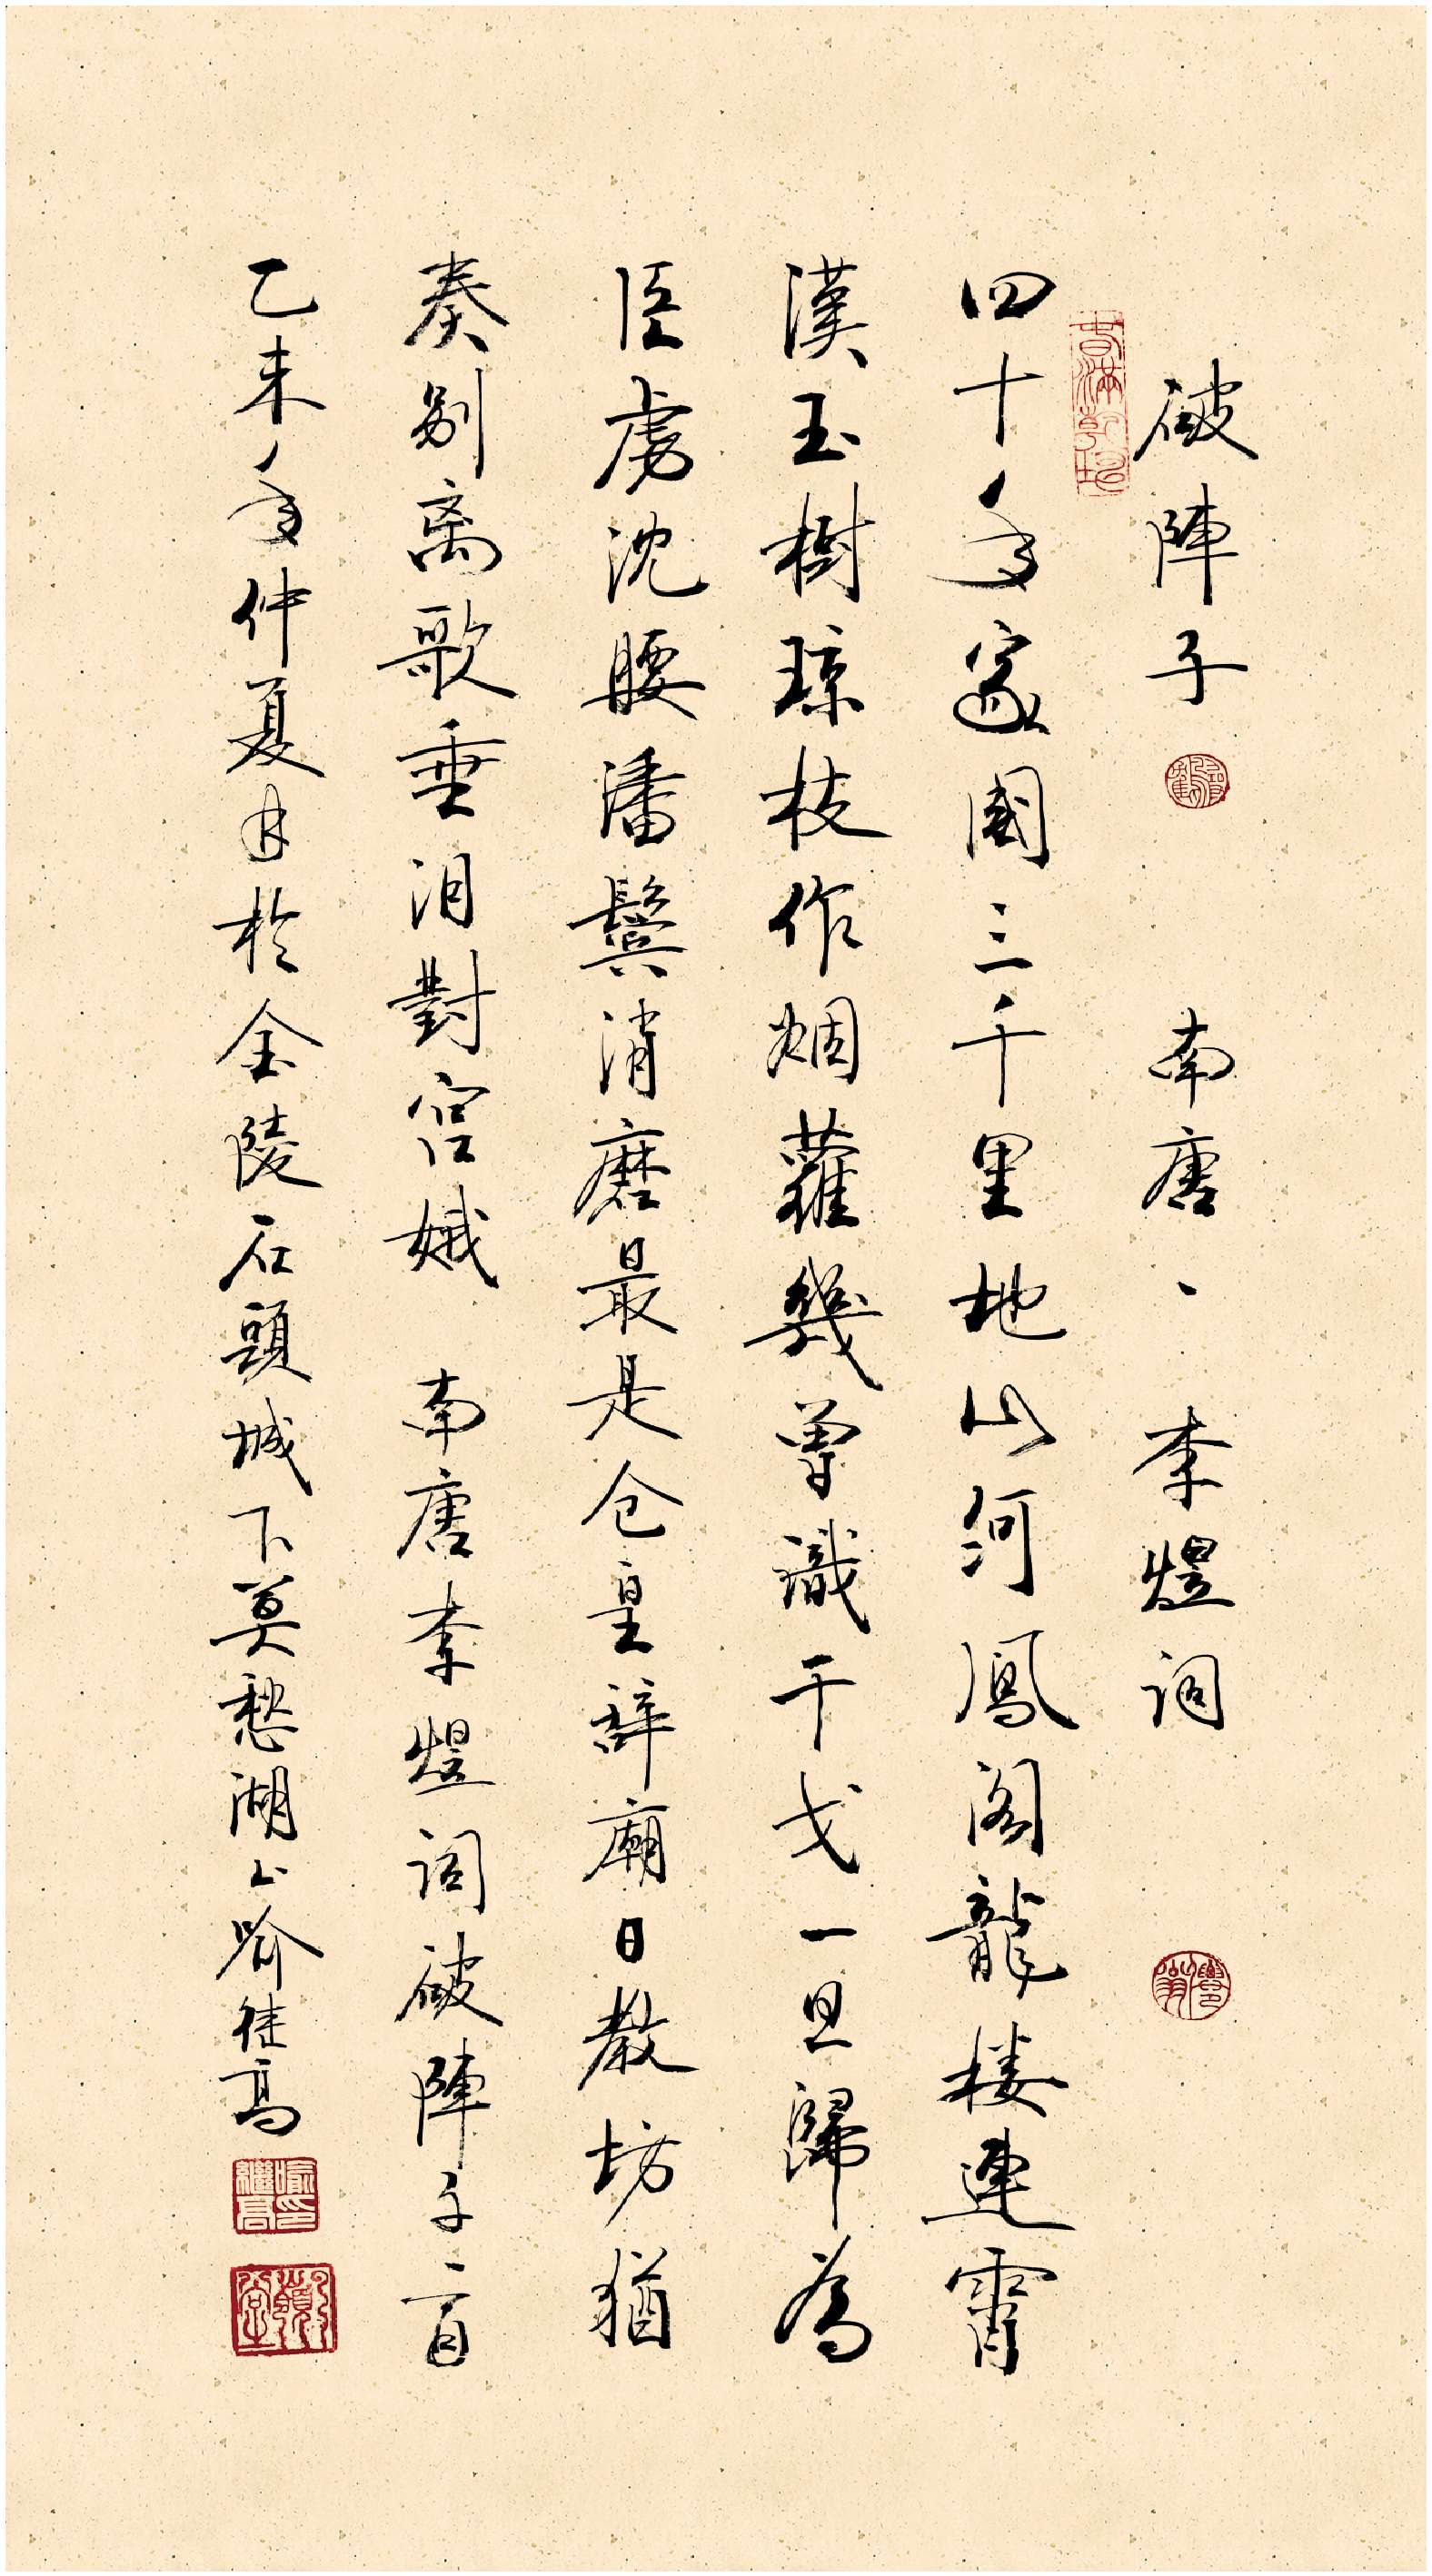 破陣子 南唐、李煜詞
四十年家國三千里地山河鳳閣龍楼連霄
漢玉樹琼枝作烟蘿幾曾識干戈一旦歸為
臣虜沈腰潘鬢消磨最是仓皇辞廟日教坊猶
奏别离歌垂泪對宮娥 南唐李煜詞破陣子一首
乙未年仲夏於金陵石頭城下莫愁湖上喻继高
喻印繼高